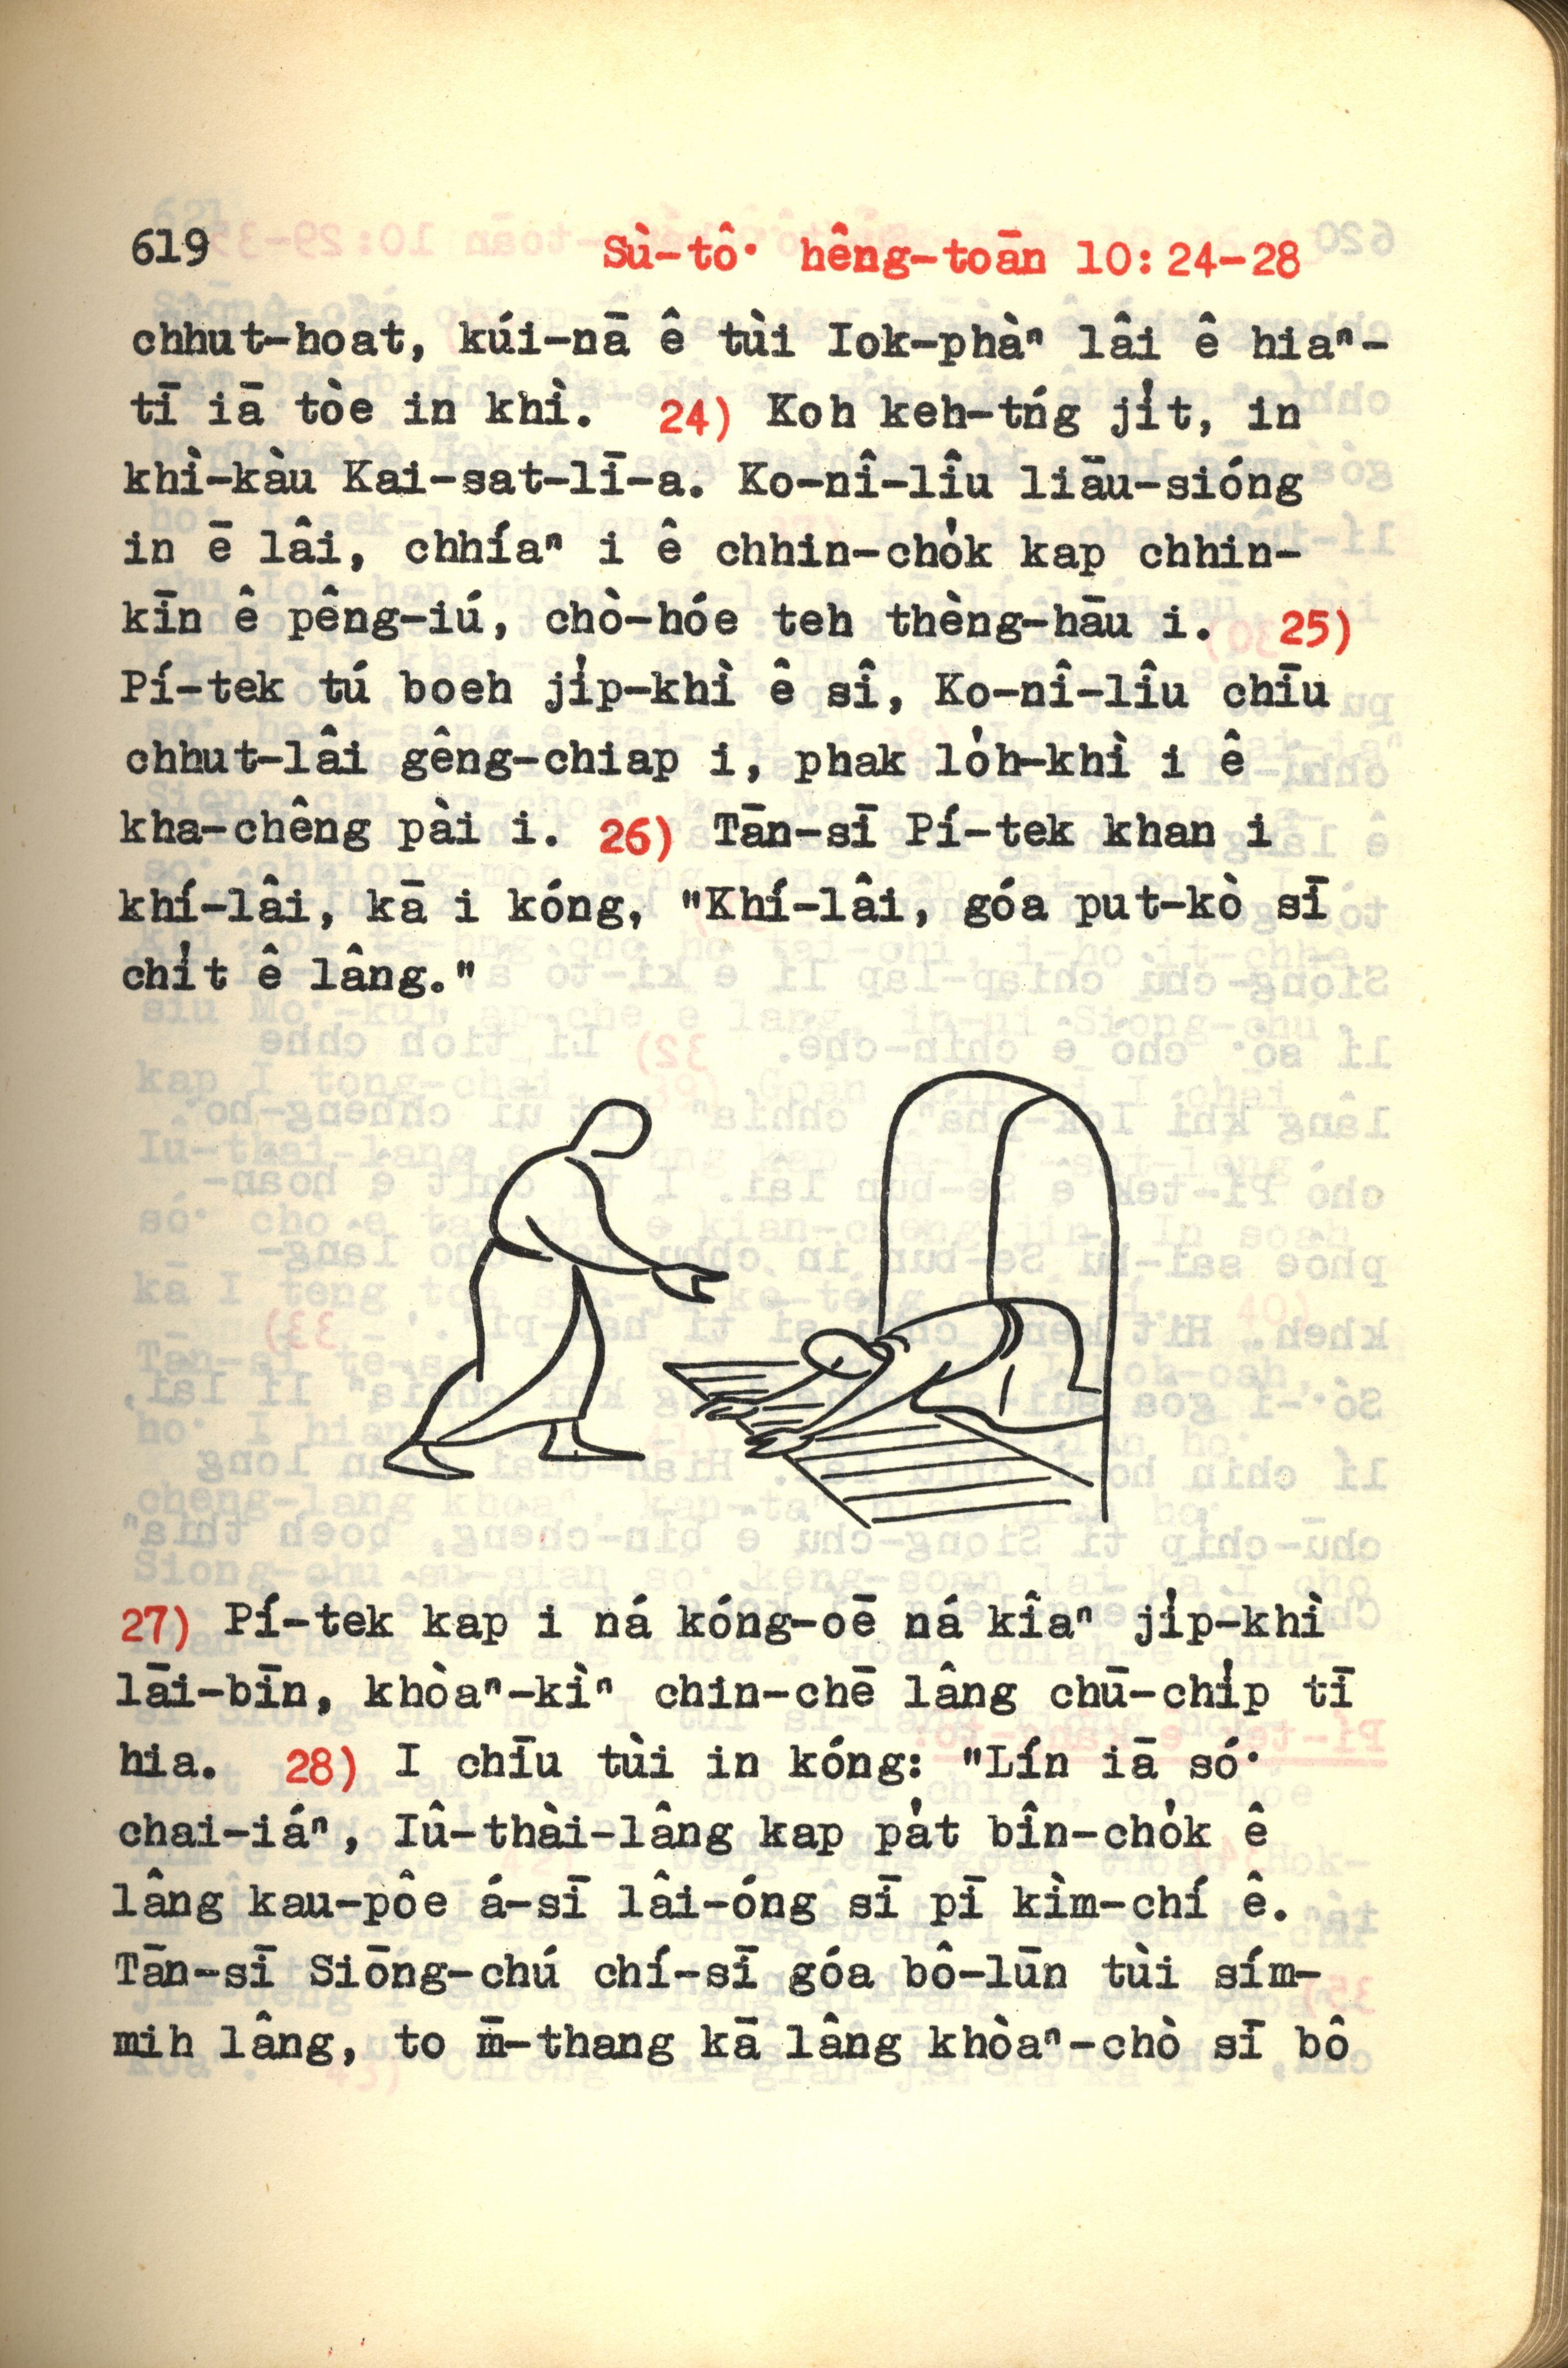 619 Sù-tô͘ hêng-toān 10:24-28
chhut-hoat, kúi-nā ê tùi Iok-phàⁿ lâi ê hiaⁿ-
tī iā tòe in khì. 24) Koh keh-tńg ji̍t, in
khì-kàu Kai-sat-lī-a. Ko-nî-lîu liāu-sióng
in ē lâi, chhíaⁿ i ê chhin-cho̍k kap chhin-
kīn ê pêng-iú, chò-hóe teh thèng-hāu i. 25)
Pí-tek tú boeh ji̍p-khì ê sî, Ko-nî-lîu chīu
chhut-lâi gêng-chiap i, phak lo̍h-khì i ê
kha-chêng pài i. 26) Tān-sī Pí-tek khan i
khí-lâi, kā i kóng, "Khí-lâi, góa put-kò sī
chi̍t ê lâng."
27) Pí-tek kap i ná kóng-oē ná kîaⁿ ji̍p-khì
lāi-bīn, khòaⁿ-kìⁿ chin-chē lâng chū-chi̍p tī
hia. 28) I chīu tùi in kóng: "Lín iā só͘
chai-iáⁿ, Iû-thài-lâng kap pa̍t bîn-cho̍k ê
lâng kau-pôe á-sī lâi-óng sī pī kìm-chí ê.
Tān-sī Siōng-chú chí-sī góa bô-lūn tùi sím-
mih lâng, to m̄-thang kā lâng khòaⁿ-chò sī bô